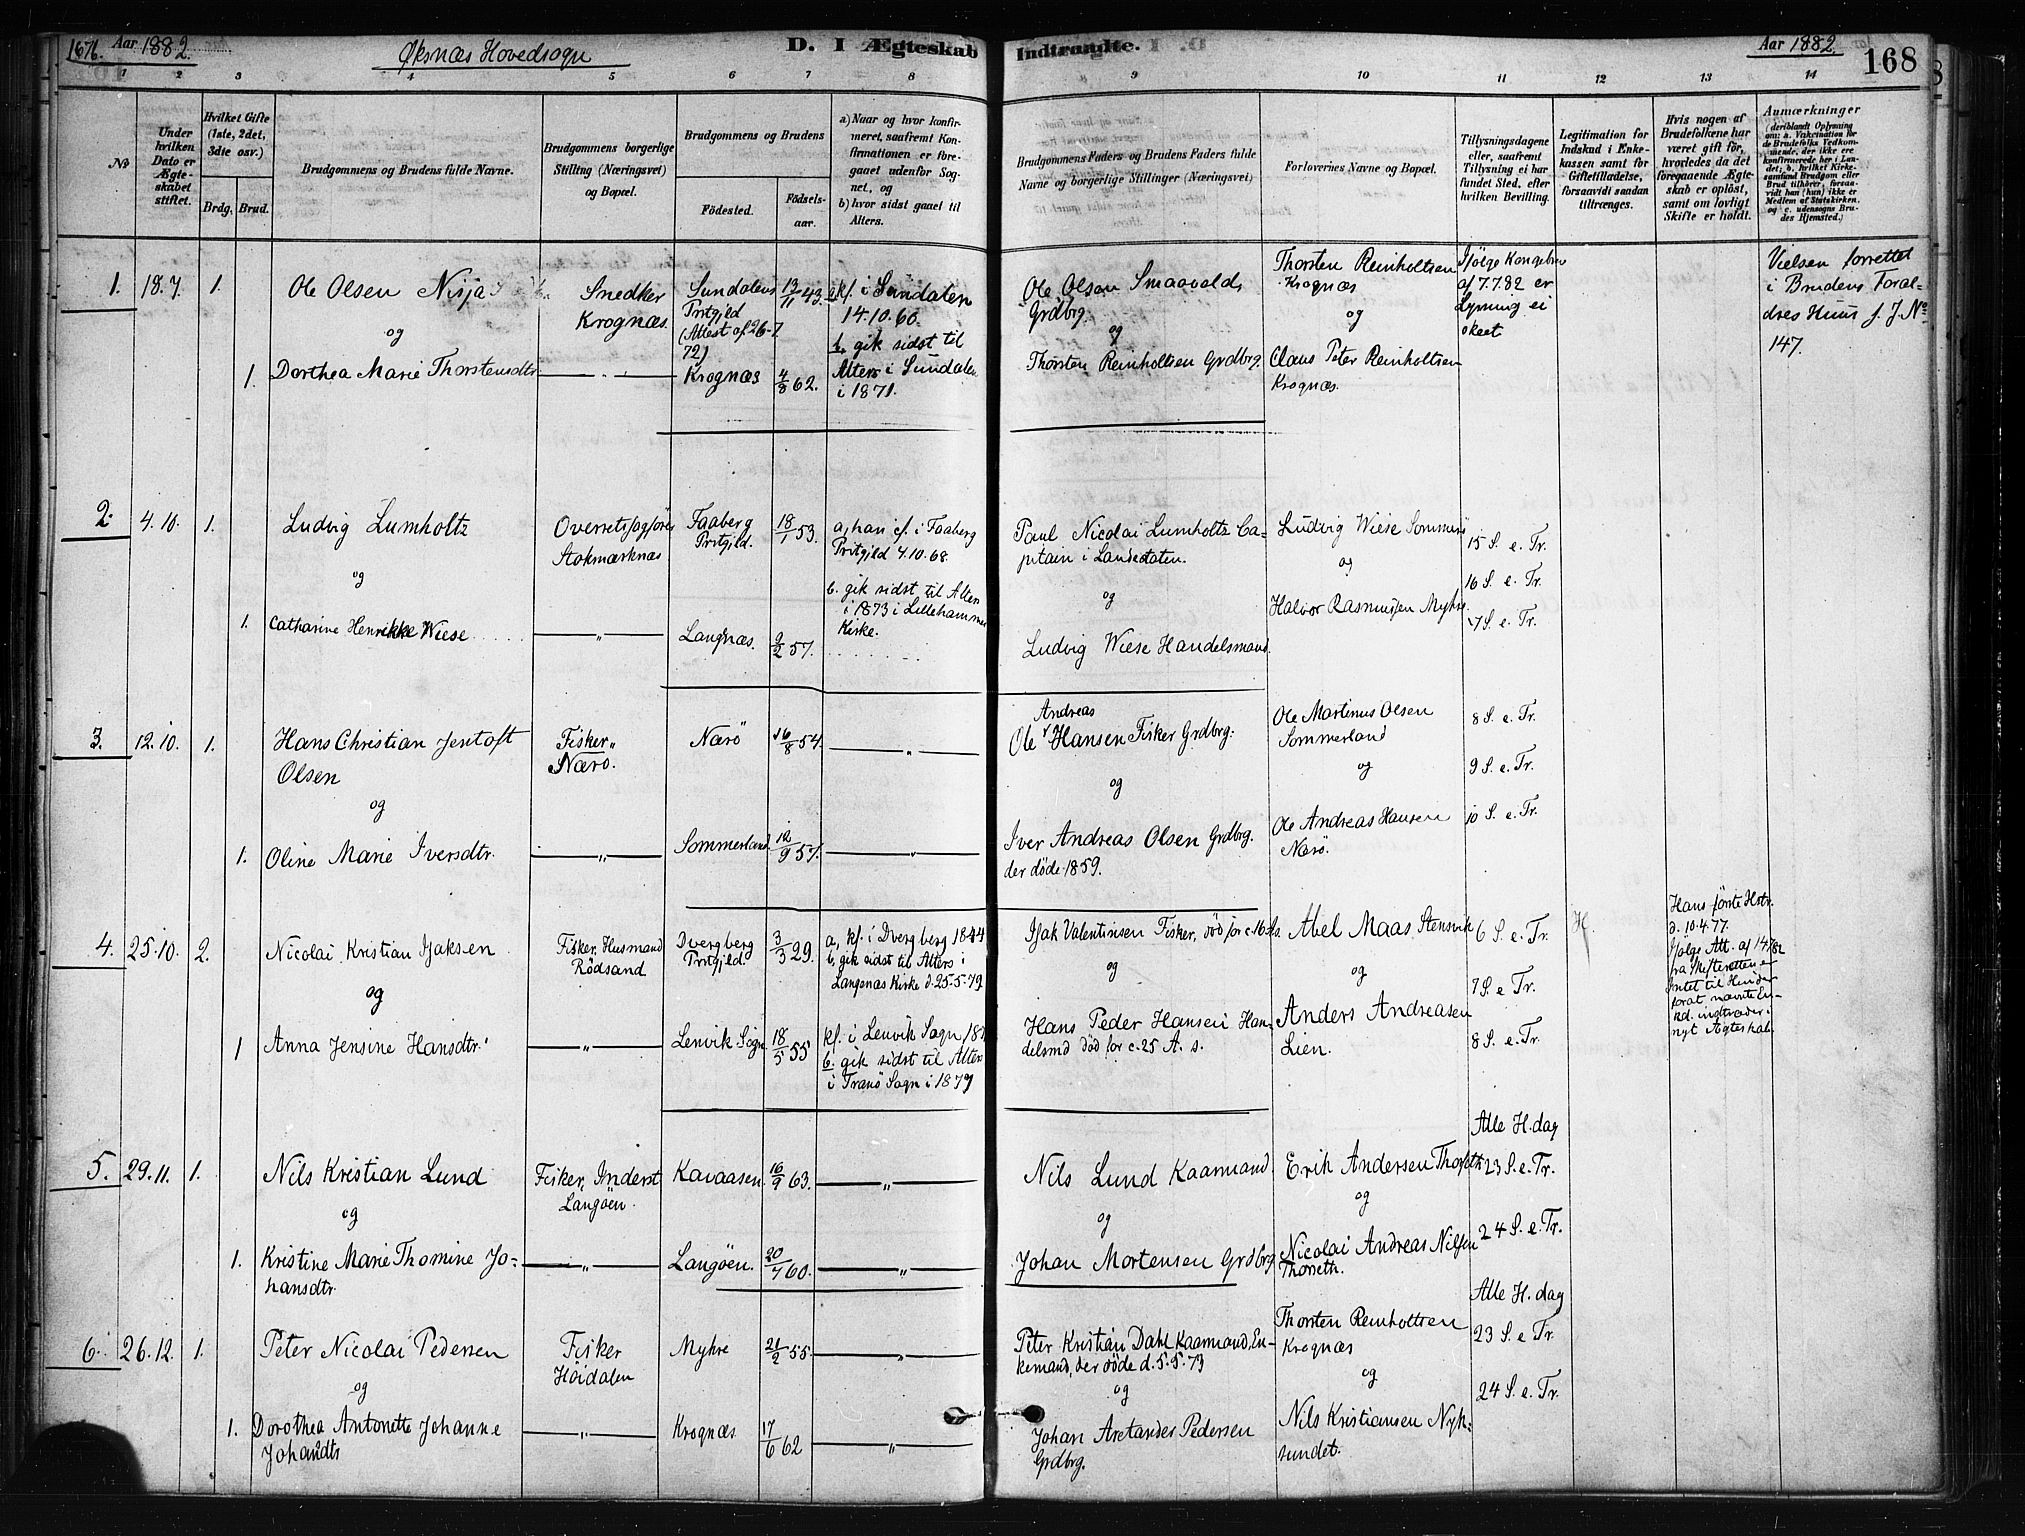 167b. Aar 1882.
Øksnæs Hovedsogn
D. I Ægteskab Indtraadte.
Aar 1882.
168
1 2 3 4 5 6 7 8 9 10 11 12 13 14
No
Under hvilken Dato er Ægteskabet stiftet.
Hvilket Gifte (1ste, 2det, 3die osv.)
Brdg. Brud.
Brudgommens og Brudens fulde Navne.
Brudgommens borgerlige Stilling (Næringsvei) og Bopæl.
Brudgommens og Brudens
Fødested.
Fødselsaar.
a) Naar og hvor konfirmeret, saafremt Konfirmationen er foregaaet udenfor Sognet, og
b) hvor sidst gaaet til Alters.
Brudgommens Faders og Brudens Faders fulde Navne og borgerlige Stillinger (Næringsvei)
Forlovernes Navne og Bopæl.
Tillysningsdagene eller, saafremt Tillysning ei har fundet Sted, efter hvilken Bevilling.
Legitimation for Indskud i Enkekassen samt for Giftetilladelse, forsaavidt saadan tiltrænges.
Hvis nogen af Brudefolkene har været gift før, hvorledes da det foregaaende Ægteskab er opløst, samt om lovligt Skifte er holdt.
Anmærkninger
(deriblandt Oplysning om: a. Vakcination for de Brudefolks Vedkommende, der ikke ere konfirmerede her i Landet; b. hvilket Kirkesamfund Brudgom eller Brud tilhører, forsaavidt han (hun) ikke er Medlem af Statskirken, og c. udensogns Brudes Hjemsted.)
1. 18.7. 1. Ole Olsen Nisja
og
1. Dorthea Marie Thorstensdtr
Snedker
Krognæs.
Sundalens
Prstgjld
(Attest af 26-7
72)
Krognæs
13/11 43.
4/8 62.
a, kf. i Sundalen
14.10.60.
b, gik sidst til
Alters i Sundalen
i 1871.
Ole Olsen Smaavold,
Grdbrg
og
Thorsten Reinholtsen Grdbrg.
Thorsten Reinholtsen
Krognæs
og
Claus Peter Reinholtsen
Krognæs.
Ifølge Kongebrev
af 7.7.82 er
Lysning ei
skeet
Vielsen forrettet
i Brudens Foræl-
dres Huus f. J. No
147.
2. 4.10. 1. Ludvig Lumholtz
og
1. Catharine Henrikke Wiese
Overretssagfører
Stokmærknæs
Faaberg
Prstgjld.
Langnæs.
18/1 53.
2/2 57.
a, han cf. i Faaberg
Prstgjld 4.10.68.
b. gik sidst til Alters
i 1873 i Lillehammer
Kirke.
Paul Nicolai Lumholtz Ca-
pitain i Landetaten.
og
Ludvig Wiese Handelsmand.
Ludvig Wiese Sommerö
og
Halvor Rasmussen Myhre
15 S. e. Tr.
16 S. e. Tr.
17 S. e. Tr.
3. 12.10. 1. Hans Christian Jentoft
Olsen
og
1. Oline Marie Iversdtr.
Fisker,
Nærö.
Nærö
Sommerland
16/8 54.
12/9 57.
Andreas
Ole Hansen Fisker Grdbrg.
og
Iver Andreas Olsen Grdbrg.
der døde 1859.
Ole Martinus Olsen
Sommerland
og
Ole Andreas Hansen
Nærö.
8 S. e. Tr.
9 S. e. Tr.
10 S. e. Tr.
4. 25.10. 2. Nicolai Kristian Isaksen
og
1 Anna Jensine Hansdtr.
Fisker, Husmand
Rödsand
Dvergberg
Prstgjld.
Lenvik Sogn
3/3 29.
18/5 55
a, kf. i Dvergberg 1844
b, gik sidst til Alters i
Langenæs Kirke d. 25-5-79
kf. i Lenvik Sogn
b. gik sidst til Alters
i Tranö Sogn i 1879
Isak Valentinsen Fisker, død for c. 16
og
Hans Peder Hansen Han-
delsmd død for c. 25 A. s.
Abel Maas Stensvik
og
Anders Andreasen
Lien.
6 S. e. Tr.
7 S. e Tr.
8 S. e. Tr.
Hans første Hstr.
d. 10.4.77.
Ifølge Att. af
fra Skifteretten er
Intet til Hinder
forat nævnte En-
kd. indtræder i
nyt Ægteskab.
5. 29.11. 1. Nils Kristian Lund
og
1. Kristine Marie Thomine Jo-
hansdtr.
Fisker, Inderst
Langöen.
Kavaasen.
Langöen.
16/9 63.
20/7 60.
Nils Lund Kaarmand
og
Johan Mortensen Grdbrg
Erik Andersen
og
Nicolai Andreas Nilsen
Alle H. dag
23 S. e. Tr.
24 S. e. Tr.
6. 26.12. 1. Peter Nicolai Pedersen
og
1. Dorothea Antonette Johanne
Johansdtr
Fisker
Höidalen
Myhre
Krognæs
21/2 55.
17/6 62
Peter Kristian Dahl Kaarmand, En-
kemand, der døde d. 5.5.73
og
Johan Aretander Pedersen
Grdbrg.
Thorsten Reinholtsen
Krognæs
og
Nils Kristiansen Nyk-
sundet.
Alle H. dag
23 S. e Tr.
24 S. e. Tr.